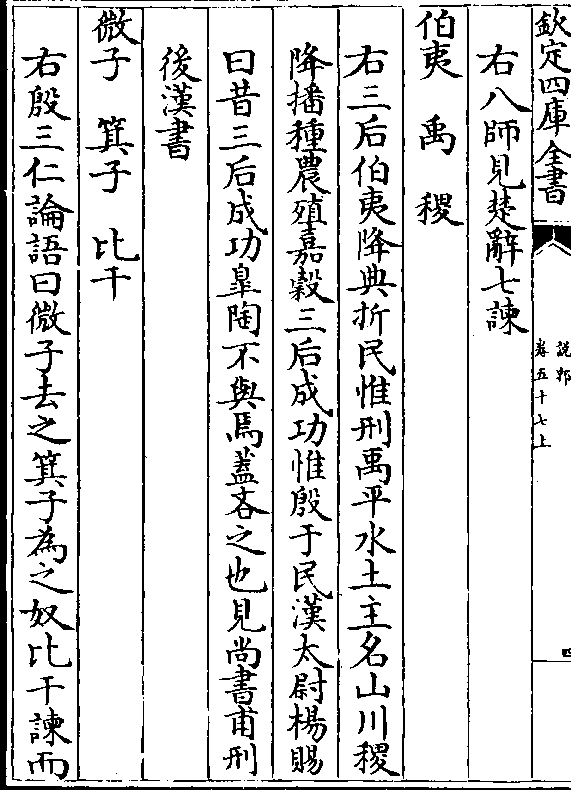 欽定四庫全書
説郛
卷五十七上
四
右八師見楚辭七諫
伯夷　禹　稷
右三后伯夷降典折民惟刑禹平水土主名山川稷
降播種農殖嘉穀三后成功惟殷于民漢太尉楊賜
曰昔三后成功臯陶不與焉蓋吝之也見尚書甫刑
後漢書
微子　箕子　比干
右殷三仁論語曰微子去之箕子為之奴比干諫而